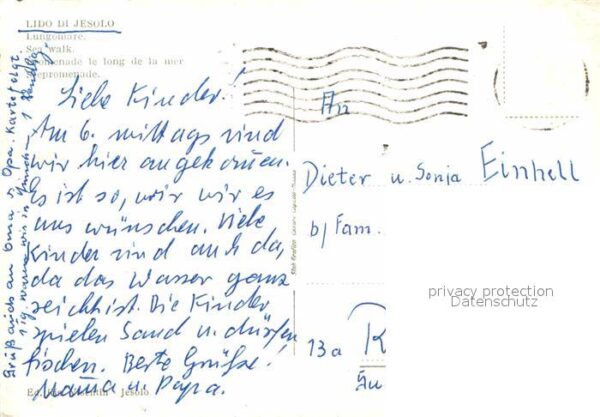 LIDO DI JESOLO
Lungomare.
Sea walk.
Promenade le long de la mer
Seepromenade.
Liebe Kinder!
Am 6. mittags sind
wir hier angekommen.
Es ist so, wie wir es
uns wünschen. Viele
Kinder sind auch da,
da das Wasser ganz
seicht ist. Die Kinder
spielen Sand u. dürfen
fischen. Beste Grüße!
Mama u. Papa.
Grüß auch an Oma u. Opa. Karte folgt
An
Dieter u. Sonja Einhell
b/ Fam.
13a K
privacy protection
Datenschutz
Jesolo